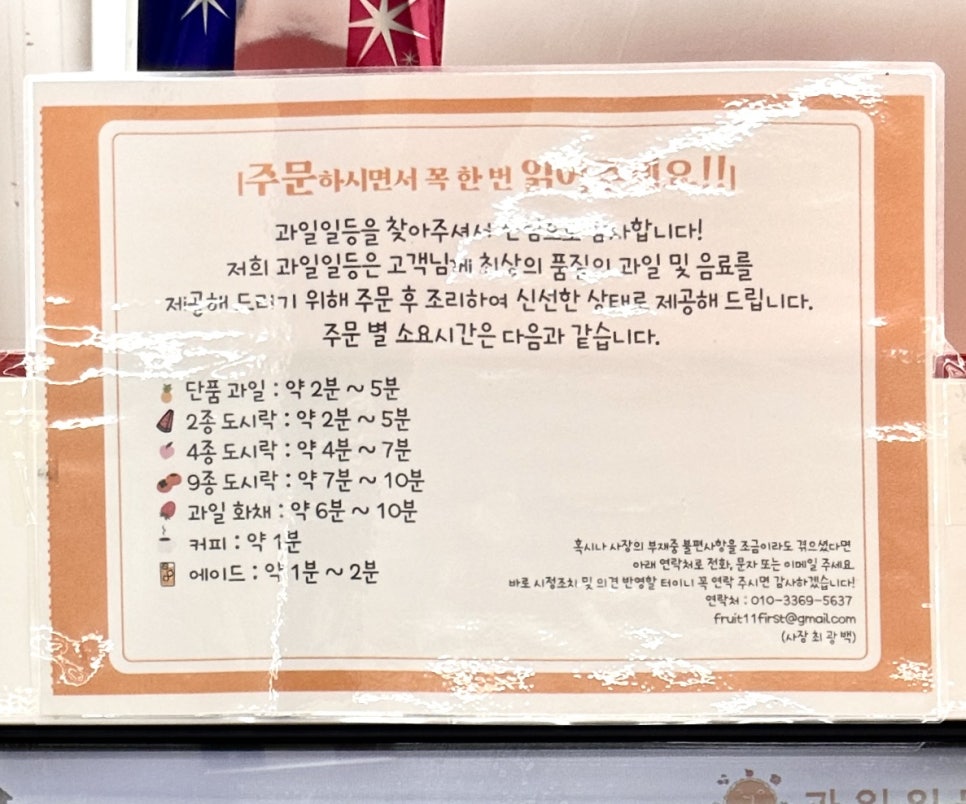 주문하시면서 꼭 한 번 읽어 주세요!!
과일일등을 찾아주셔서 진심으로 감사합니다!
저희 과일일등은 고객님께 최상의 품질의 과일 및 음료를
제공해 드리기 위해 주문 후 조리하여 신선한 상태로 제공해 드립니다.
주문 별 소요시간은 다음과 같습니다.
단품 과일 : 약 2분 ~ 5분
2종 도시락 : 약 2분 ~ 5분
4종 도시락 : 약 4분 ~ 7분
9종 도시락 : 약 7분 ~ 10분
과일 화채 : 약 6분 ~ 10분
커피 : 약 1분
에이드 : 약 1분 ~ 2분
혹시나 사장의 부재중 불편사항을 조금이라도 겪으셨다면
아래 연락처로 전화, 문자 또는 이메일 주세요
바로 시정조치 및 의견 반영할 터이니 꼭 연락 주시면 감사하겠습니다!
연락처 : 010-3369-5637
fruit11first@gmail.com
(사장 최 광 백)